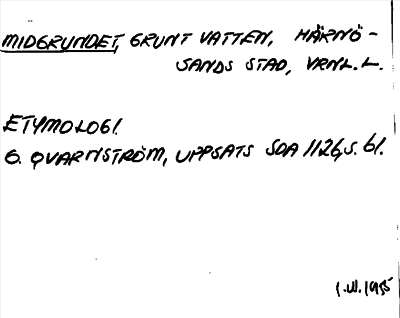 MIDGRUNDET, GRUNT VATTEN, HÄRNÖ-
SANDS STAD, VRNL. L.
ETYMOLOGI.
G. QVARNSTRÖM, UPPSATS SOA 1126, S. 61.
1.VI.1955